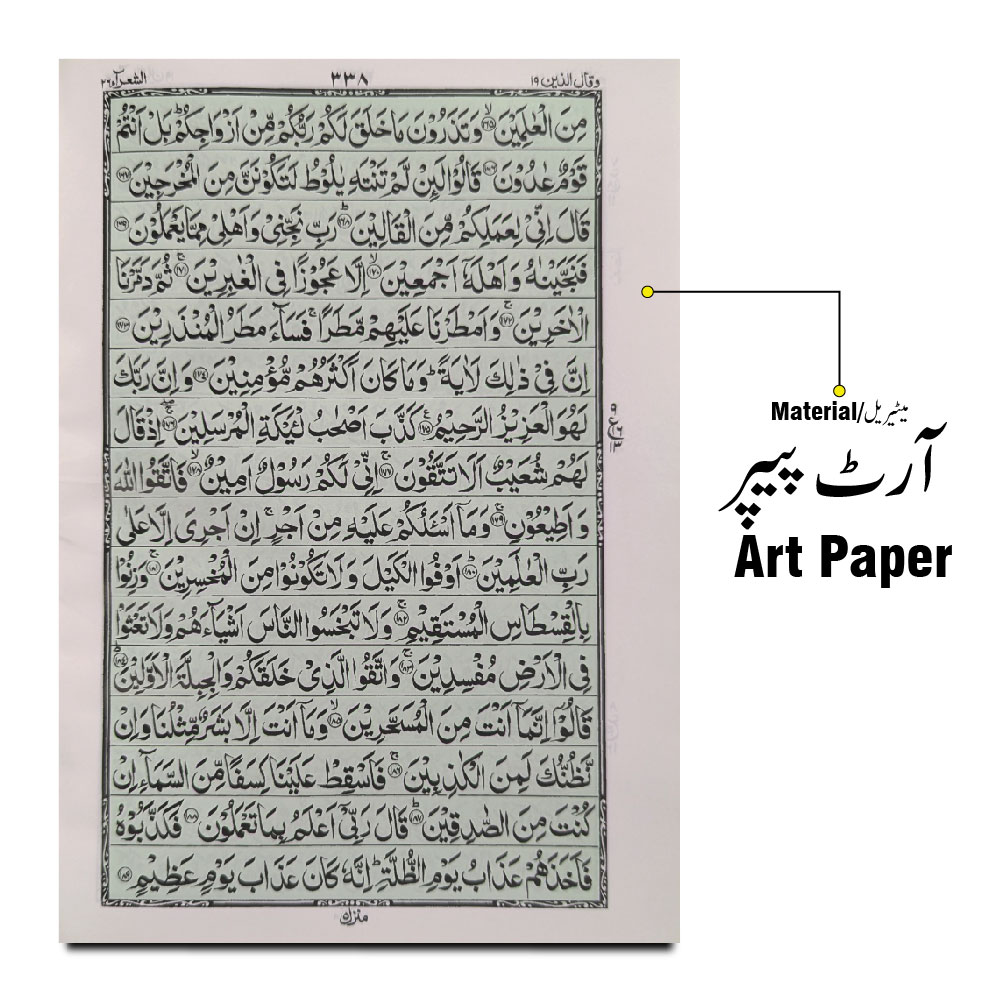 وقال الذين ١٩ ٣٣٨ الشعرآء ٢٦
مِنَ الْعٰلَمِيْنَ ۙ﴿١٦٥﴾ وَتَذَرُوْنَ مَا خَلَقَ لَكُمْ رَبُّكُمْ مِّنْ اَزْوَاجِكُمْ ؕ بَلْ اَنْتُمْ
قَوْمٌ عٰدُوْنَ ﴿١٦٦﴾ قَالُوْا لَئِنْ لَّمْ تَنْتَهِ يٰلُوْطُ لَتَكُوْنَنَّ مِنَ الْمُخْرَجِيْنَ ﴿١٦٧﴾
قَالَ اِنِّيْ لِعَمَلِكُمْ مِّنَ الْقَالِيْنَ ؕ﴿١٦٨﴾ رَبِّ نَجِّنِيْ وَاَهْلِيْ مِمَّا يَعْمَلُوْنَ ﴿١٦٩﴾
فَنَجَّيْنٰهُ وَاَهْلَهٗۤ اَجْمَعِيْنَ ۙ﴿١٧٠﴾ اِلَّا عَجُوْزًا فِي الْغٰبِرِيْنَ ۚ﴿١٧١﴾ ثُمَّ دَمَّرْنَا
الْاٰخَرِيْنَ ۚ﴿١٧٢﴾ وَاَمْطَرْنَا عَلَيْهِمْ مَّطَرًا ۚ فَسَآءَ مَطَرُ الْمُنْذَرِيْنَ ﴿١٧٣﴾
اِنَّ فِيْ ذٰلِكَ لَاٰيَةً ؕ وَمَا كَانَ اَكْثَرُهُمْ مُّؤْمِنِيْنَ ﴿١٧٤﴾ وَاِنَّ رَبَّكَ
لَهُوَ الْعَزِيْزُ الرَّحِيْمُ ﴿١٧٥﴾ كَذَّبَ اَصْحٰبُ لْئَيْكَةِ الْمُرْسَلِيْنَ ۚۖ﴿١٧٦﴾ اِذْ قَالَ
لَهُمْ شُعَيْبٌ اَلَا تَتَّقُوْنَ ۚ﴿١٧٧﴾ اِنِّيْ لَكُمْ رَسُوْلٌ اَمِيْنٌ ۙ﴿١٧٨﴾ فَاتَّقُوا اللّٰهَ
وَاَطِيْعُوْنِ ۚ﴿١٧٩﴾ وَمَاۤ اَسْـَٔلُكُمْ عَلَيْهِ مِنْ اَجْرٍ ۚ اِنْ اَجْرِيَ اِلَّا عَلٰي
رَبِّ الْعٰلَمِيْنَ ؕ﴿١٨٠﴾ اَوْفُوا الْكَيْلَ وَلَا تَكُوْنُوْا مِنَ الْمُخْسِرِيْنَ ۚ﴿١٨١﴾ وَزِنُوْا
بِالْقِسْطَاسِ الْمُسْتَقِيْمِ ۚ﴿١٨٢﴾ وَلَا تَبْخَسُوا النَّاسَ اَشْيَآءَهُمْ وَلَا تَعْثَوْا
فِي الْاَرْضِ مُفْسِدِيْنَ ۚ﴿١٨٣﴾ وَاتَّقُوا الَّذِيْ خَلَقَكُمْ وَالْجِبِلَّةَ الْاَوَّلِيْنَ ؕ﴿١٨٤﴾
قَالُوْۤا اِنَّمَاۤ اَنْتَ مِنَ الْمُسَحَّرِيْنَ ۙ﴿١٨٥﴾ وَمَاۤ اَنْتَ اِلَّا بَشَرٌ مِّثْلُنَا وَاِنْ
نَّظُنُّكَ لَمِنَ الْكٰذِبِيْنَ ۚ﴿١٨٦﴾ فَاَسْقِطْ عَلَيْنَا كِسَفًا مِّنَ السَّمَآءِ اِنْ
كُنْتَ مِنَ الصّٰدِقِيْنَ ؕ﴿١٨٧﴾ قَالَ رَبِّيْۤ اَعْلَمُ بِمَا تَعْمَلُوْنَ ﴿١٨٨﴾ فَكَذَّبُوْهُ
فَاَخَذَهُمْ عَذَابُ يَوْمِ الظُّلَّةِ ؕ اِنَّهٗ كَانَ عَذَابَ يَوْمٍ عَظِيْمٍ ﴿١٨٩﴾
منزل ٥
Material/میٹیریل
آرٹ پیپر
Art Paper